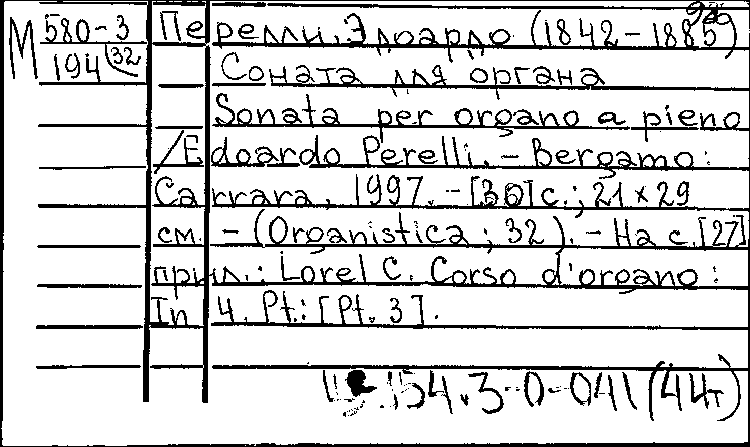 М 580-3
194 (32
Перелли, Эдоардо (1842-1885)
Соната для органа
Sonata per organo a pieno
/Edoardo Perelli. - Bergamo:
Carrara, 1997. - [30] с.; 21 x 29
см. - (Organistica ; 32). - На с. [27]
прил.: Lorel C. Corso d'organo:
In 4. Pt.: [Pt. 3].
154.3-0-041 (44т)